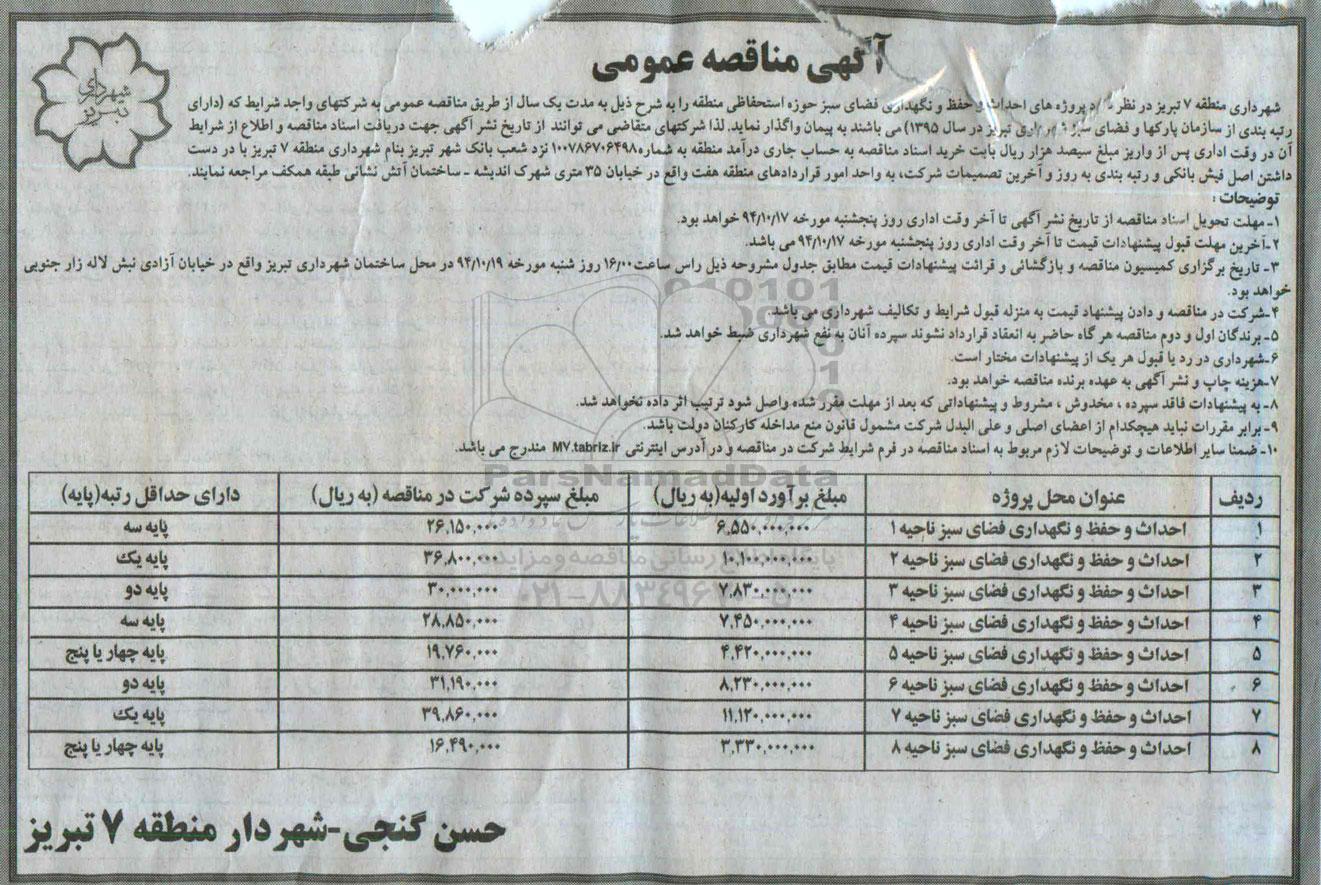 آگهی مناقصه عمومی
شهرداری تبریز
شهرداری منطقه ۷ تبریز در نظر دارد پروژه های احداث و حفظ و نگهداری فضای سبز حوزه استحفاظی منطقه را به شرح ذیل به مدت یک سال از طریق مناقصه عمومی به شرکتهای واجد شرایط که (دارای
رتبه بندی از سازمان پارکها و فضای سبز شهرداری تبریز در سال ۱۳۹۵) می باشند به پیمان واگذار نماید. لذا شرکتهای متقاضی می توانند از تاریخ نشر آگهی جهت دریافت اسناد مناقصه و اطلاع از شرایط
آن در وقت اداری پس از واریز مبلغ سیصد هزار ریال بابت خرید اسناد مناقصه به حساب جاری درآمد منطقه به شماره۱۰۰۷۸۶۷۰۶۴۹۸ نزد شعب بانک شهر تبریز بنام شهرداری منطقه ۷ تبریز با در دست
داشتن اصل فیش بانکی و رتبه بندی به روز و آخرین تصمیمات شرکت، به واحد امور قراردادهای منطقه هفت واقع در خیابان ۳۵ متری شهرک اندیشه - ساختمان آتش نشانی طبقه همکف مراجعه نمایند.
توضیحات :
۱- مهلت تحویل اسناد مناقصه از تاریخ نشر آگهی تا آخر وقت اداری روز پنجشنبه مورخه ۹۴/۱۰/۱۷ خواهد بود.
۲-آخرین مهلت قبول پیشنهادات قیمت تا آخر وقت اداری روز پنجشنبه مورخه ۹۴/۱۰/۱۷ می باشد.
۳- تاریخ برگزاری کمیسیون مناقصه و بازگشائی و قرائت پیشنهادات قیمت مطابق جدول مشروحه ذیل راس ساعت۱۶/۰۰ روز شنبه مورخه ۹۴/۱۰/۱۹ در محل ساختمان شهرداری تبریز واقع در خیابان آزادی نبش لاله زار جنوبی
خواهد بود.
۴-شرکت در مناقصه و دادن پیشنهاد قیمت به منزله قبول شرایط و تکالیف شهرداری می باشد.
۵- برندگان اول و دوم مناقصه هر گاه حاضر به انعقاد قرارداد نشوند سپرده آنان به نفع شهرداری ضبط خواهد شد.
۶-شهرداری در رد یا قبول هر یک از پیشنهادات مختار است.
۷-هزینه چاپ و نشر آگهی به عهده برنده مناقصه خواهد بود.
۸- به پیشنهادات فاقد سپرده ، مخدوش ، مشروط و پیشنهاداتی که بعد از مهلت مقرر شده واصل شود ترتیب اثر داده نخواهد شد.
۹- برابر مقررات نباید هیچکدام از اعضای اصلی و علی البدل شرکت مشمول قانون منع مداخله کارکنان دولت باشد.
۱۰- ضمنا سایر اطلاعات و توضیحات لازم مربوط به اسناد مناقصه در فرم شرایط شرکت در مناقصه و در آدرس اینترنتی MV.tabriz.ir مندرج می باشد.
ParsNamadData
ردیف عنوان محل پروژه مبلغ برآورد اولیه(به ریال) مبلغ سپرده شرکت در مناقصه (به ریال) دارای حداقل رتبه(پایه)
۱ احداث و حفظ و نگهداری فضای سبز ناحیه ۱ ۶,۵۵۰,۰۰۰,۰۰۰ ۲۶,۱۵۰,۰۰۰ پایه سه
۲ احداث و حفظ و نگهداری فضای سبز ناحیه ۲ ۱۰,۱۰۰,۰۰۰,۰۰۰ ۳۶,۸۰۰,۰۰۰ پایه یک
۳ احداث و حفظ و نگهداری فضای سبز ناحیه ۳ ۷,۸۳۰,۰۰۰,۰۰۰ ۳۰,۰۰۰,۰۰۰ پایه دو
۴ احداث و حفظ و نگهداری فضای سبز ناحیه ۴ ۷,۴۵۰,۰۰۰,۰۰۰ ۲۸,۸۵۰,۰۰۰ پایه سه
۵ احداث و حفظ و نگهداری فضای سبز ناحیه ۵ ۴,۴۲۰,۰۰۰,۰۰۰ ۱۹,۷۶۰,۰۰۰ پایه چهار یا پنج
۶ احداث و حفظ و نگهداری فضای سبز ناحیه ۶ ۸,۲۳۰,۰۰۰,۰۰۰ ۳۱,۱۹۰,۰۰۰ پایه دو
۷ احداث و حفظ و نگهداری فضای سبز ناحیه ۷ ۱۱,۱۲۰,۰۰۰,۰۰۰ ۳۹,۸۶۰,۰۰۰ پایه یک
۸ احداث و حفظ و نگهداری فضای سبز ناحیه ۸ ۳,۳۳۰,۰۰۰,۰۰۰ ۱۶,۴۹۰,۰۰۰ پایه چهار یا پنج
حسن گنجی-شهردار منطقه ۷ تبریز